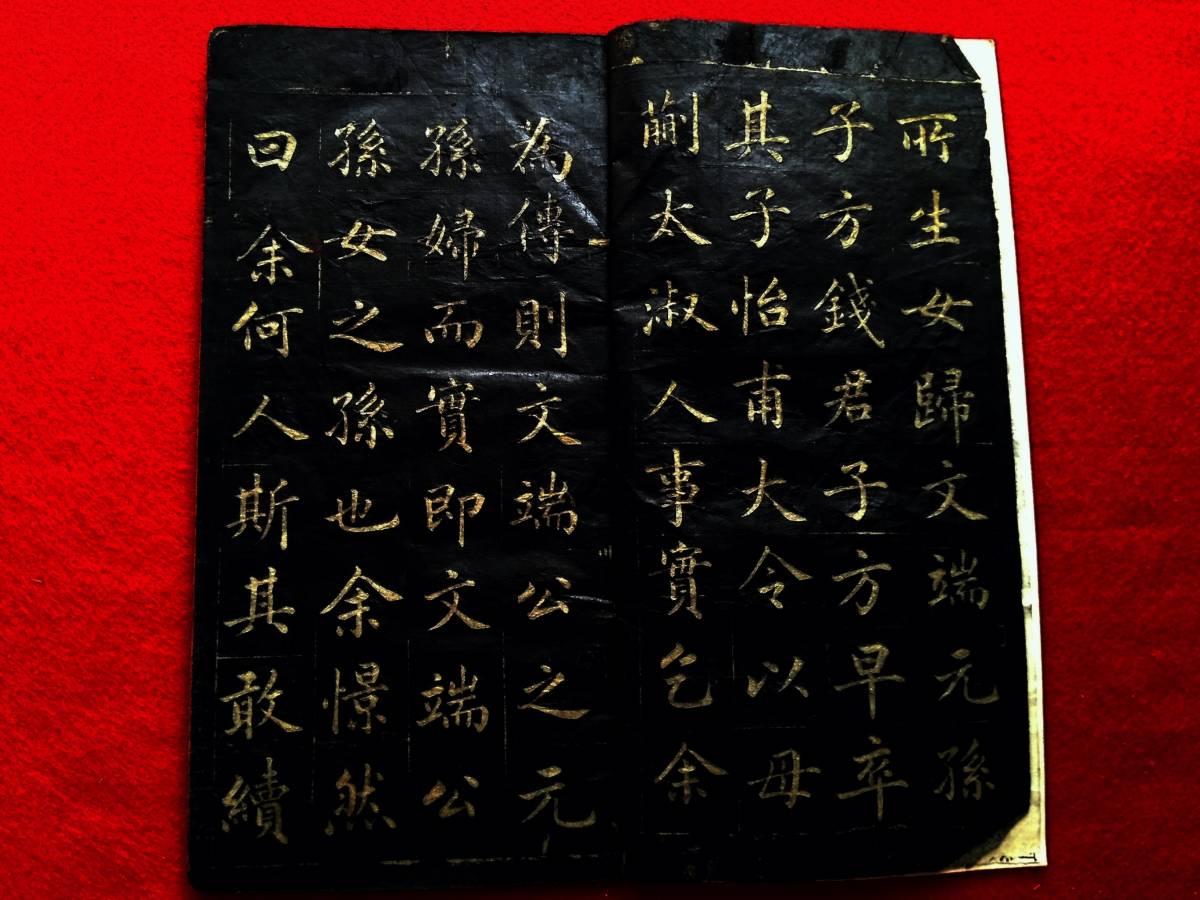 所生女歸文端元孫
子方錢君子方早卒
其子怡甫大令以母
蒯太淑人事實乞余
為傳則文端公之元
孫婦而實即文端公
孫女之孫也余憬然
曰余何人斯其敢續